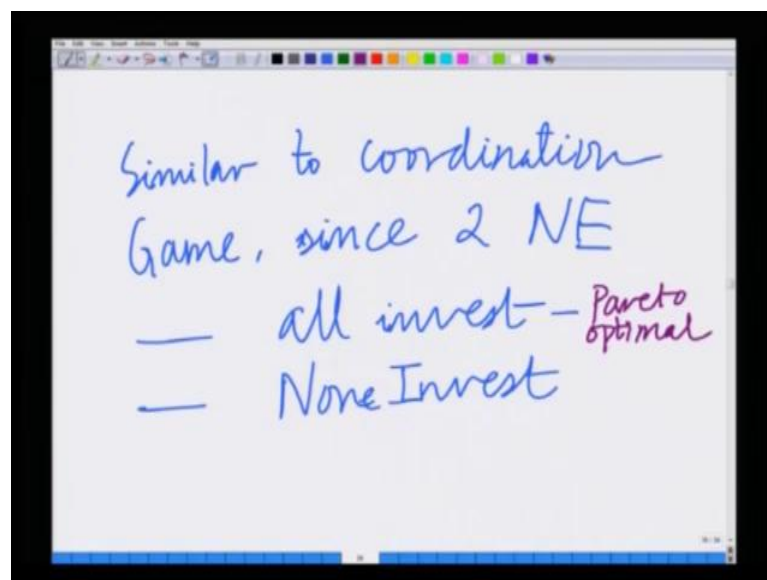 Similar to coordination
Game, since 2 NE
— all invest – Pareto optimal
— None Invest